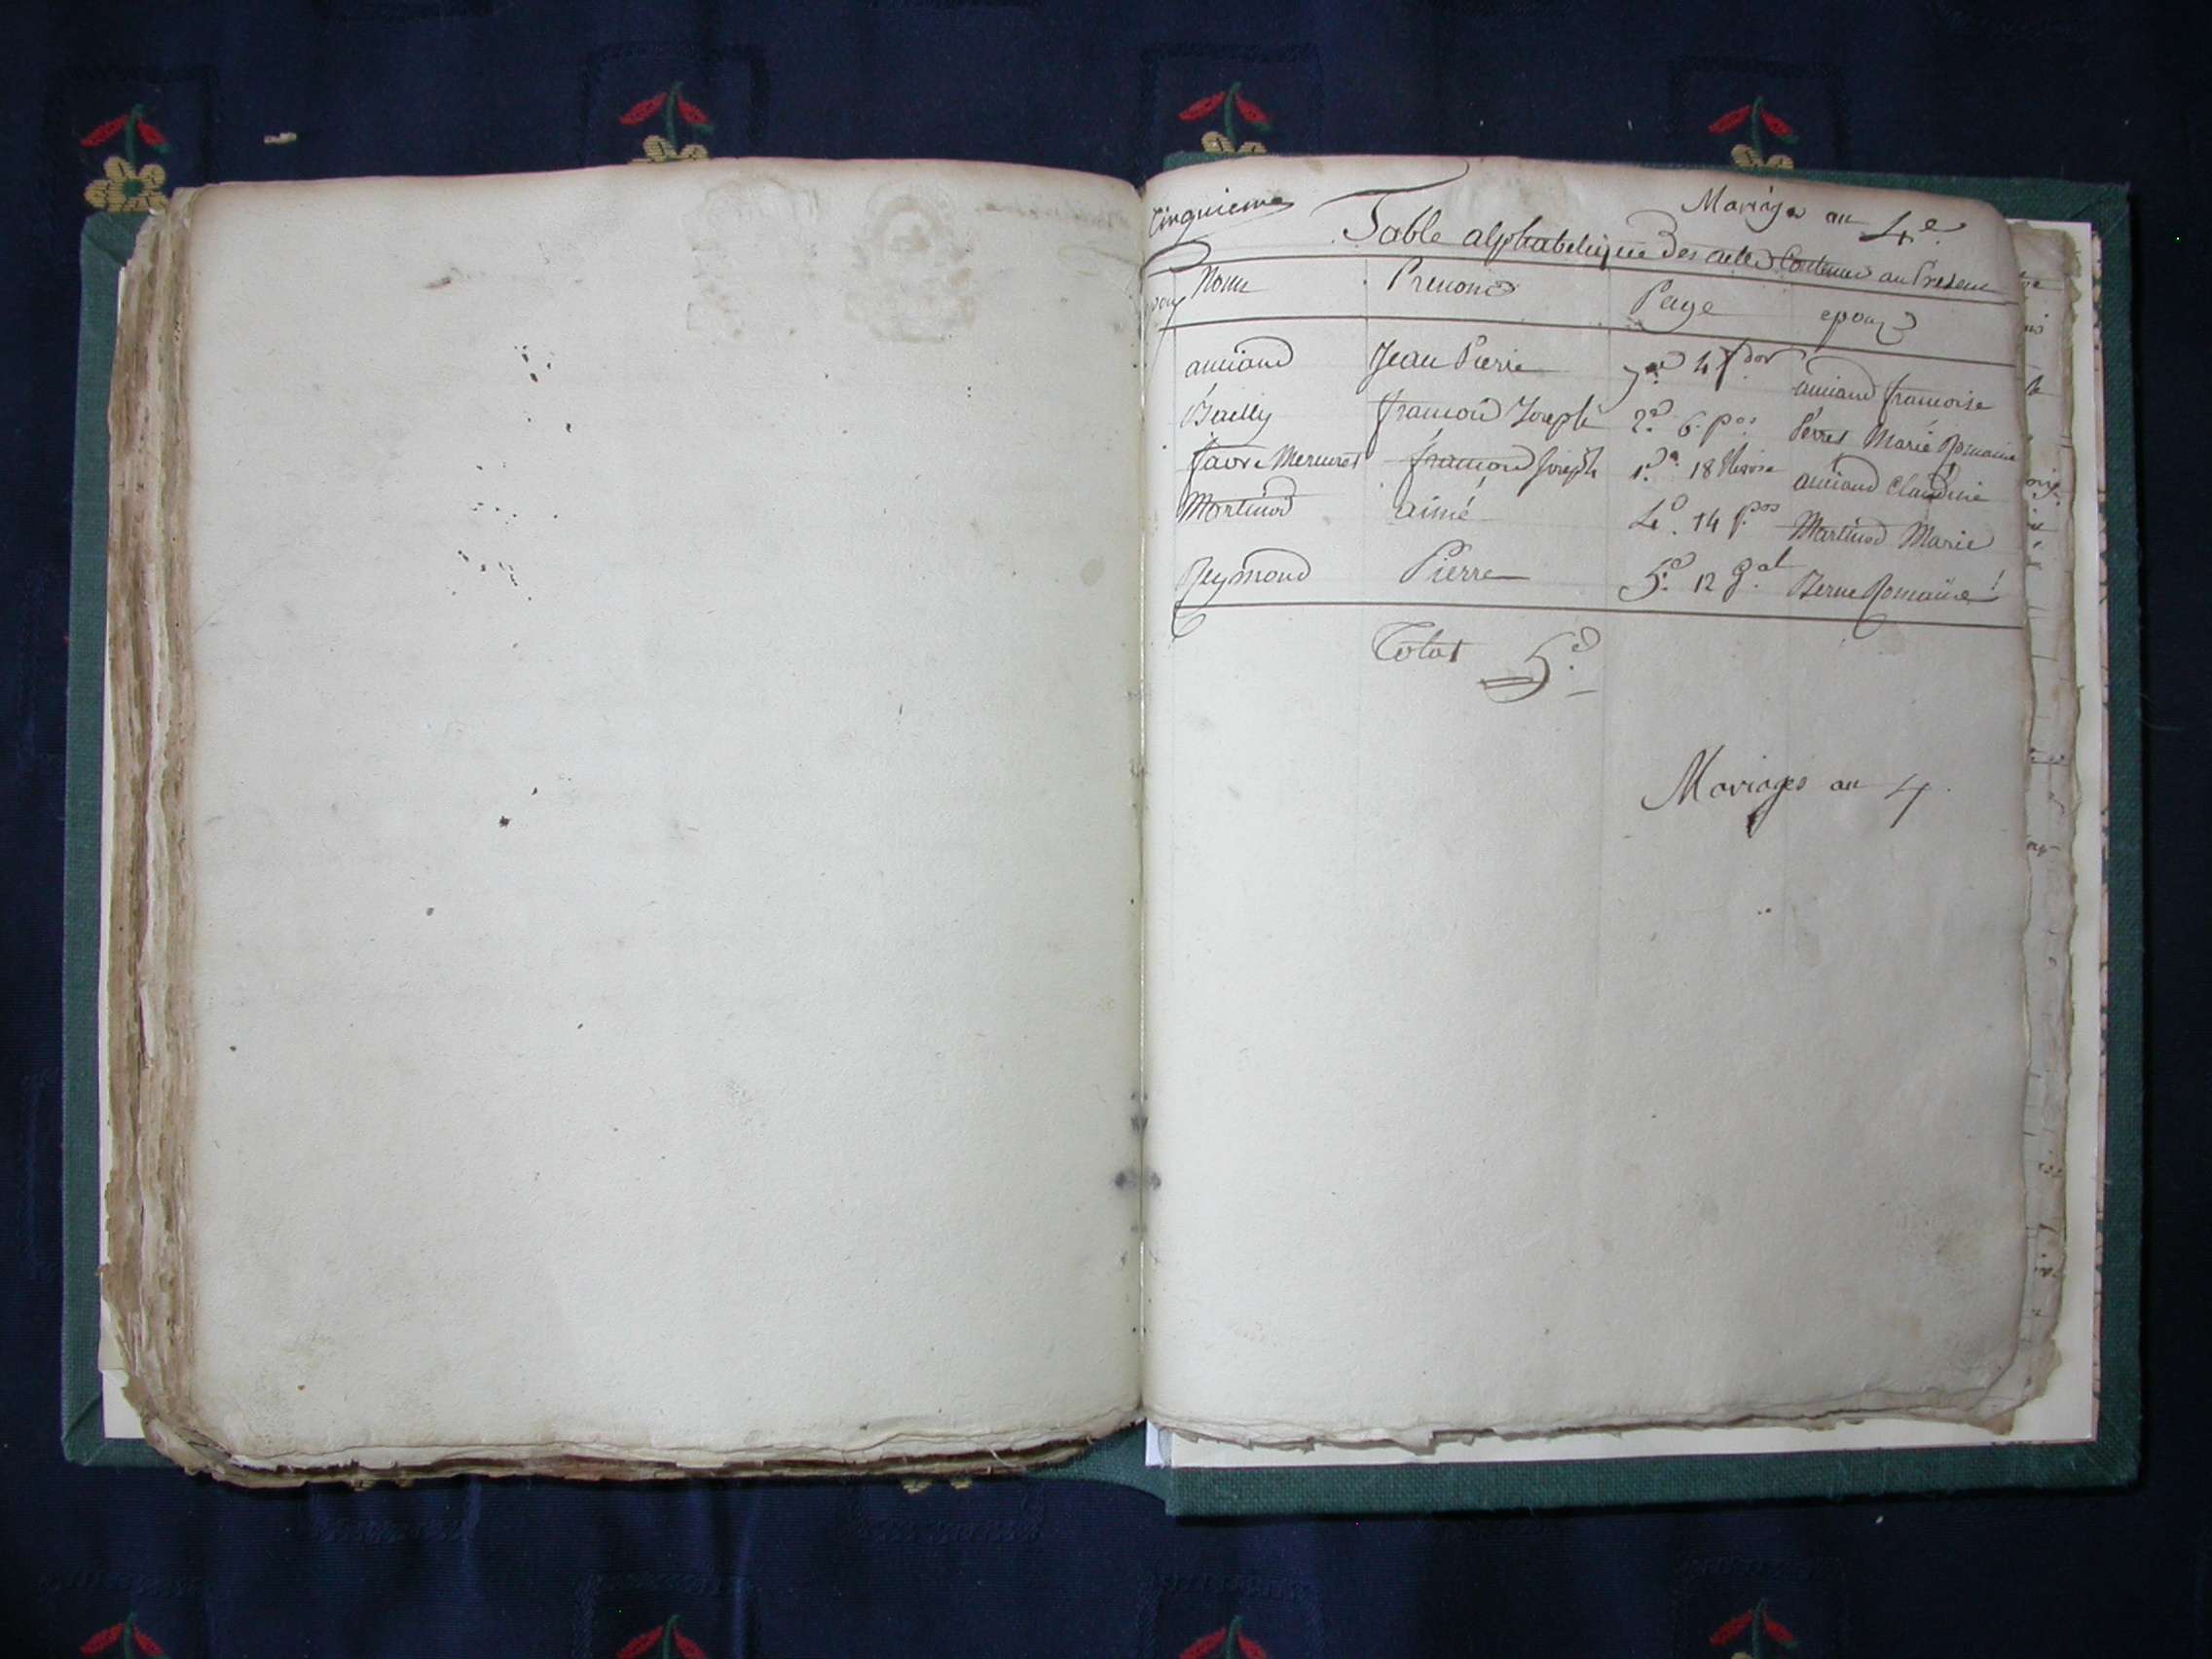 Cinquieme
Mariages an 4e
Table alphabetique des actes Contenus au Present
Noms Prenoms Page epoux
amiand Jean Pierre 4 amiand francoise
Bailly francois Joseph 2e 6 Pos Perret Marie Romaine
favre Mermet francois Joseph 1er 18 amiand Claudine
Martinod aimé 4e 14 Pos Martinod Marie
Reymond Pierre 5e 12 g.al Berne Romaine
Total 5
Mariages an 4